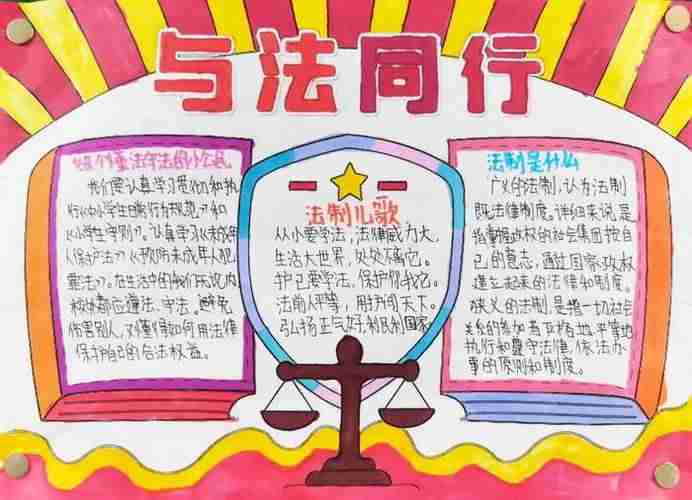 与法同行
做个懂法守法的小公民
我们要认真学习贯彻和执
行《中小学生日常行为规范》和
《小学生守则》。认真学习《未成年
人保护法》《预防未成年人犯
罪法》。在生活中的我们无论内
校外都应遵法、守法。避免
伤害别人,了懂得如何用法律
保护自己的合法权益。
法制儿歌
从小要学法,法律威力大,
生活大世界,处处不离它。
护已要学法,保护你我它。
法前人平等,用打闯天下。
弘扬正气好,利民利国家
法制是什么
广义的法制,认为法制
既法律制度。详细来说,是
指掌握政权的社会集团按自
己的意志,通过国家政权
建立起来的法律和制度。
狭义的法制,是指一切社会
关系的参加者严格地、平等地
执行和遵守法律,依法办
事的原则和制度。